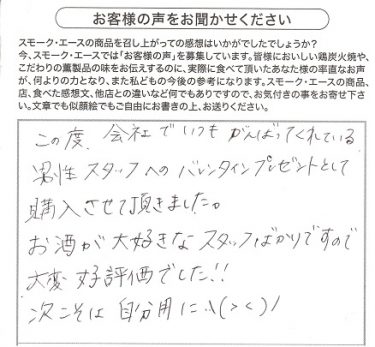 お客様の声をお聞かせください
スモーク・エースの商品を召し上がっての感想はいかがでしたでしょうか?
今、スモーク・エースでは「お客様の声」を募集しています。皆様においしい鶏炭火焼や、
こだわりの薫製品の味をお伝えするのに、実際に食べて頂いたあなた様の率直なお声
が、何よりの力となり、また私どもの今後の参考になります。スモーク・エースの商品、
店、食べた感想文、他店との違いなど何でもありですので、お気付きの事をお寄せ下さ
い。文章でも似顔絵でもご自由にお書きの上、お送りください。
この度、会社でいつもがんばってくれている
男性スタッフへのバレンタインプレゼントとして
購入させて頂きました。
お酒が大好きなスタッフばかりですので
大変好評価でした!!
次こそは自分用に..\(><)/